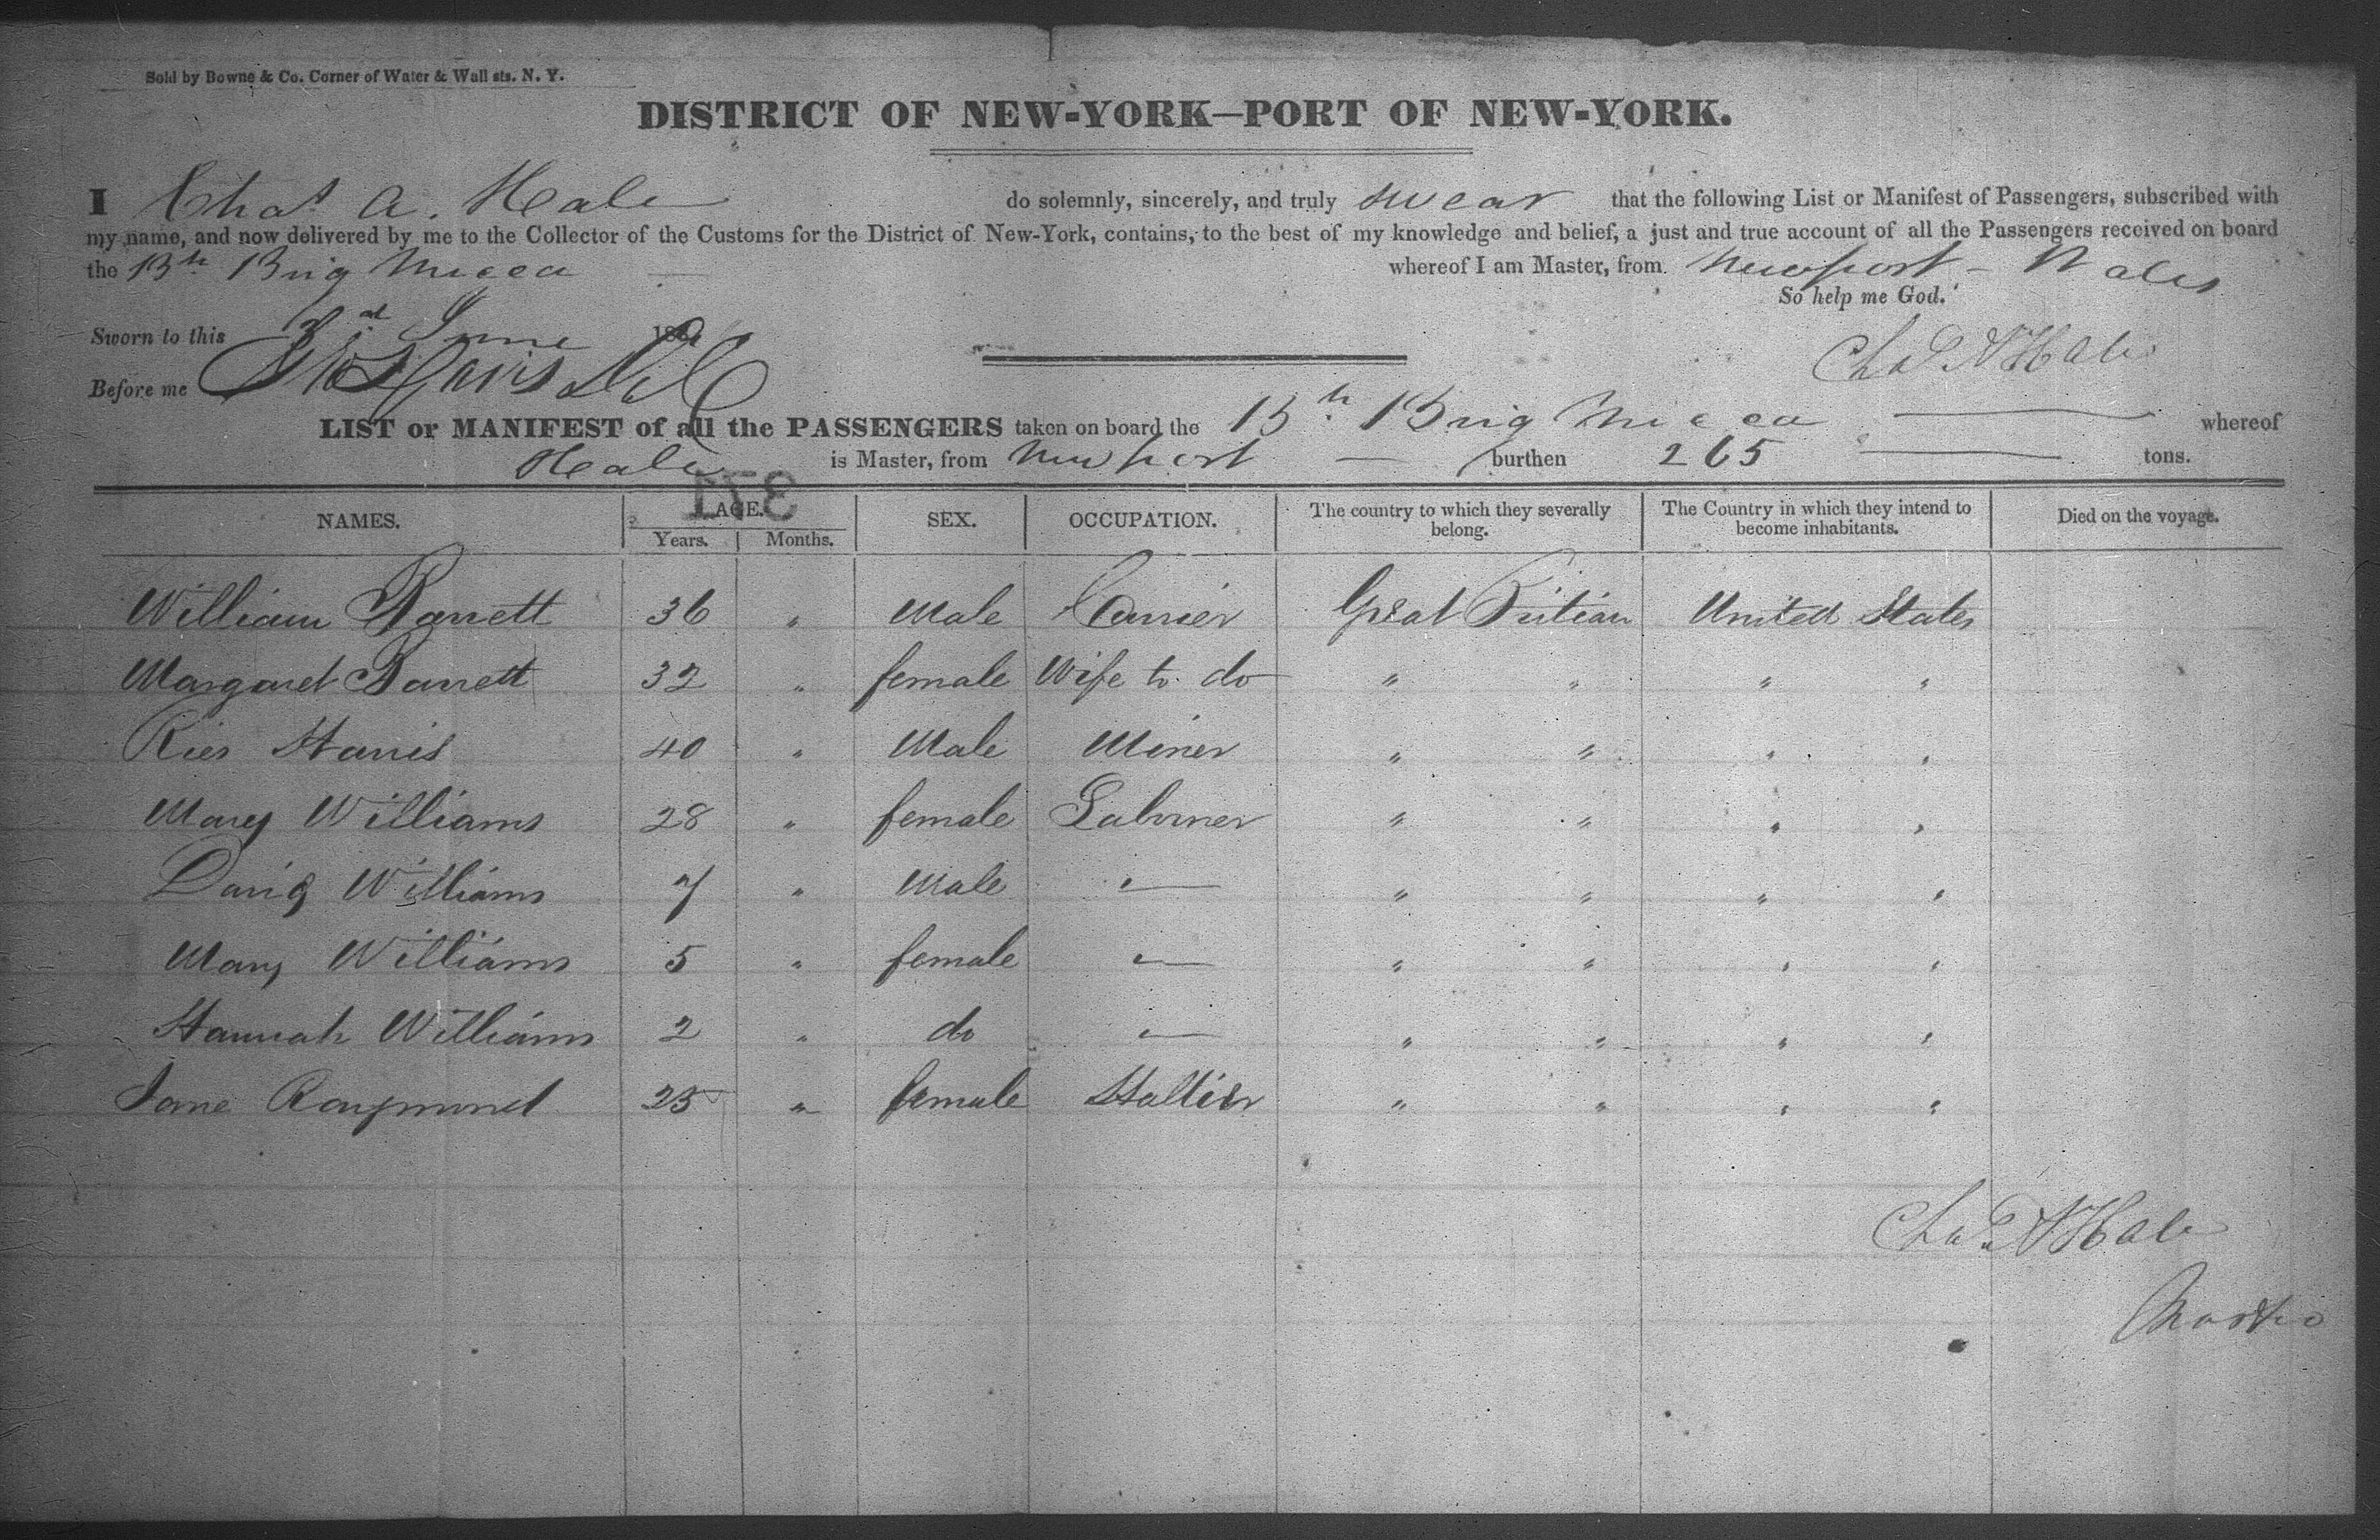 Sold by Bowne & Co. Corner of Water & Wall sts. N. Y.
DISTRICT OF NEW-YORK—PORT OF NEW-YORK.
I Chas. A. Hale do solemnly, sincerely, and truly swear that the following List or Manifest of Passengers, subscribed with
my name, and now delivered by me to the Collector of the Customs for the District of New-York, contains, to the best of my knowledge and belief, a just and true account of all the Passengers received on board
the Bth. Brig Mecca whereof I am Master, from Newport - Wales
So help me God.
Sworn to this 3d June 186
Chas A Hale
Before me
LIST or MANIFEST of all the PASSENGERS taken on board the Bth. Brig Mecca whereof
Hale is Master, from Newport burthen 265 tons.
371
NAMES. AGE. SEX. OCCUPATION. The country to which they severally belong. The Country in which they intend to become inhabitants. Died on the voyage.
Years. Months.
William Barrett 36 " Male Carrier Great Britian United States
Margaret Barrett 32 " female Wife to do " " " "
Ries Harris 40 " Male Miner " " " "
Mary Williams 28 " female Labourer " " " "
David Williams 7 " Male — " " " "
Mary Williams 5 " female — " " " "
Hannah Williams 2 " do — " " " "
Jane Raymond 25 " female " " " "
Chas A Hale
Master